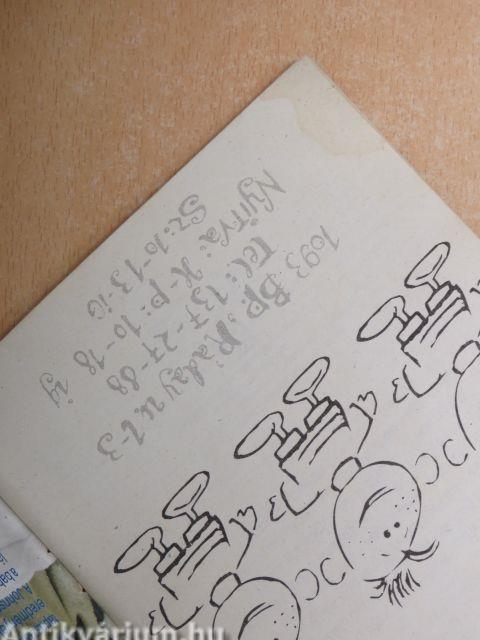 1093 Bp. Ráday u. 1-3
Tel: 137-27-88
Nyitva: H-P: 10-18 ig
Sz: 10-13-ig
a bab
A Johnson
eredmény
Antikvárium.hu